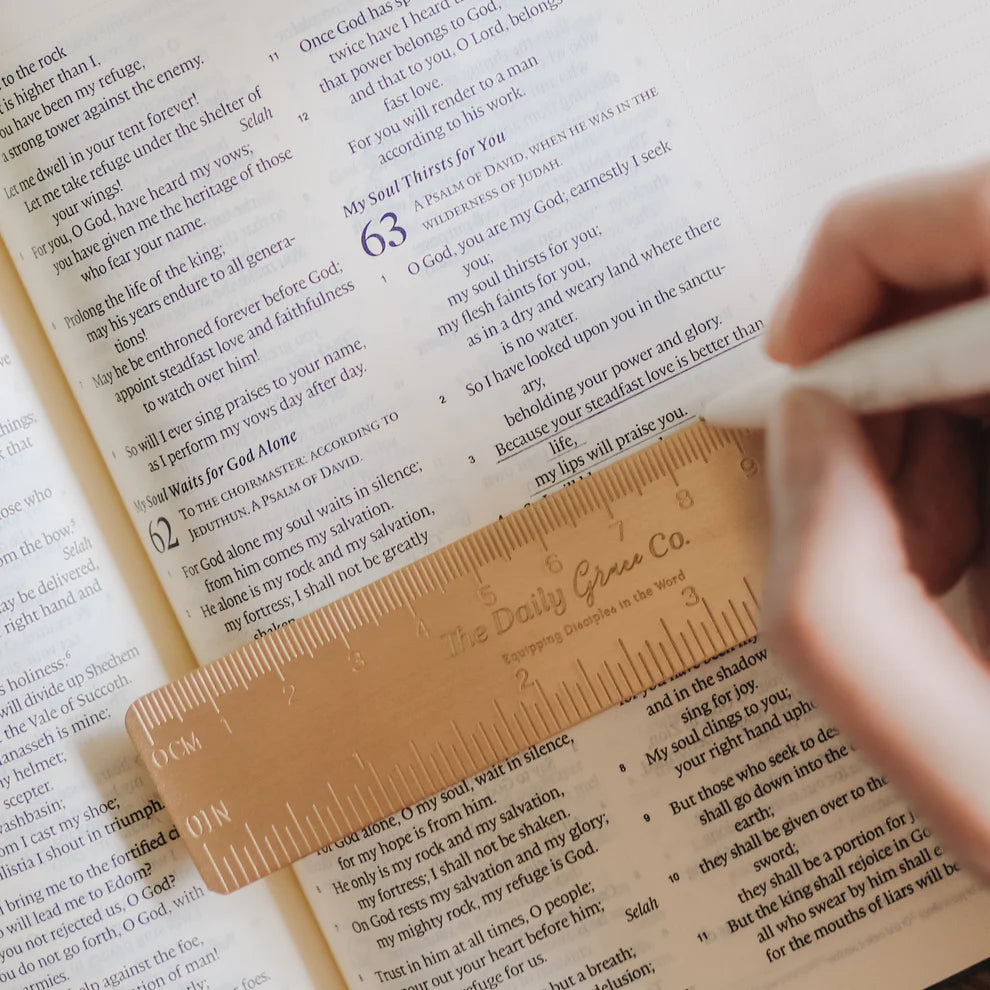 things;
that
those who
om the bow.⁵
Selah
may be delivered,
right hand and
s holiness:⁶
will divide up Shechem
the Vale of Succoth.
anasseh is mine;
my helmet;
scepter.
washbasin;
om I cast my shoe;
ilistia I shout in triumph.
l bring me to the fortified ci
o will lead me to Edom?
you not rejected us, O God?
ou do not go forth, O God, with
armies.
help against the foe,
ation of man!
foes.
to the rock
is higher than I,
ou have been my refuge,
a strong tower against the enemy.
Let me dwell in your tent forever!
Let me take refuge under the shelter of
your wings! Selah
For you, O God, have heard my vows;
you have given me the heritage of those
who fear your name.
Prolong the life of the king;
may his years endure to all genera-
tions!
May he be enthroned forever before God;
appoint steadfast love and faithfulness
to watch over him!
So will I ever sing praises to your name,
as I perform my vows day after day.
My Soul Waits for God Alone
62 TO THE CHOIRMASTER: ACCORDING TO
JEDUTHUN. A PSALM OF DAVID.
For God alone my soul waits in silence;
from him comes my salvation.
He alone is my rock and my salvation,
my fortress; I shall not be greatly
shaken.
For God alone, O my soul, wait in silence,
for my hope is from him.
He only is my rock and my salvation,
my fortress; I shall not be shaken.
On God rests my salvation and my glory;
my mighty rock, my refuge is God.
Trust in him at all times, O people;
pour out your heart before him;
refuge for us. Selah
but a breath;
delusion;
11 Once God has sp
twice have I heard t
that power belongs to God,
12 and that to you, O Lord, belongs
fast love.
For you will render to a man
according to his work.
My Soul Thirsts for You
63 A PSALM OF DAVID, WHEN HE WAS IN THE
WILDERNESS OF JUDAH.
1 O God, you are my God; earnestly I seek
you;
my soul thirsts for you;
my flesh faints for you,
as in a dry and weary land where there
is no water.
2 So I have looked upon you in the sanctu-
ary,
beholding your power and glory.
3 Because your steadfast love is better than
life,
my lips will praise you.
and in the shadow
sing for joy.
8 My soul clings to you;
your right hand upho
9 But those who seek to des
shall go down into the
earth;
10 they shall be given over to the
sword;
they shall be a portion for j
11 But the king shall rejoice in Go
all who swear by him shall e
for the mouths of liars will be
0 CM 1 2 3 4 5 6 7 8 9
The Daily Grace Co.
Equipping Disciples in the Word
0 IN 1 2 3